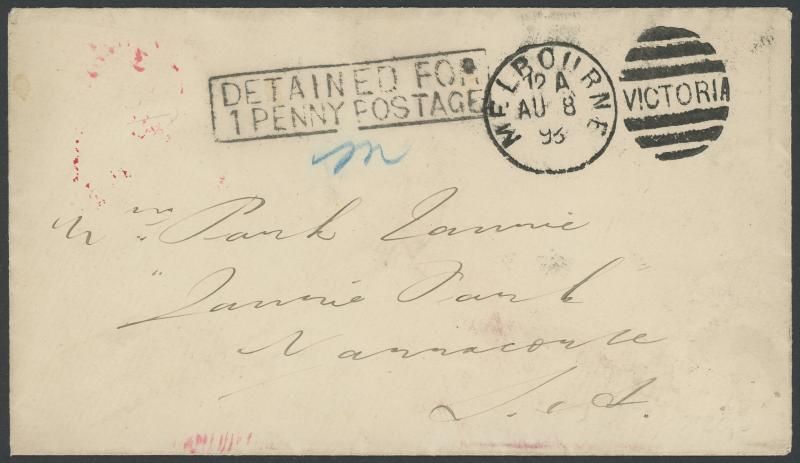 DETAINED FOR
1 PENNY POSTAGE
MELBOURNE
12 A
AU 8
93
VICTORIA
Wm Park Lawrie
"Lawrie Park"
Narracoorte
S. A.